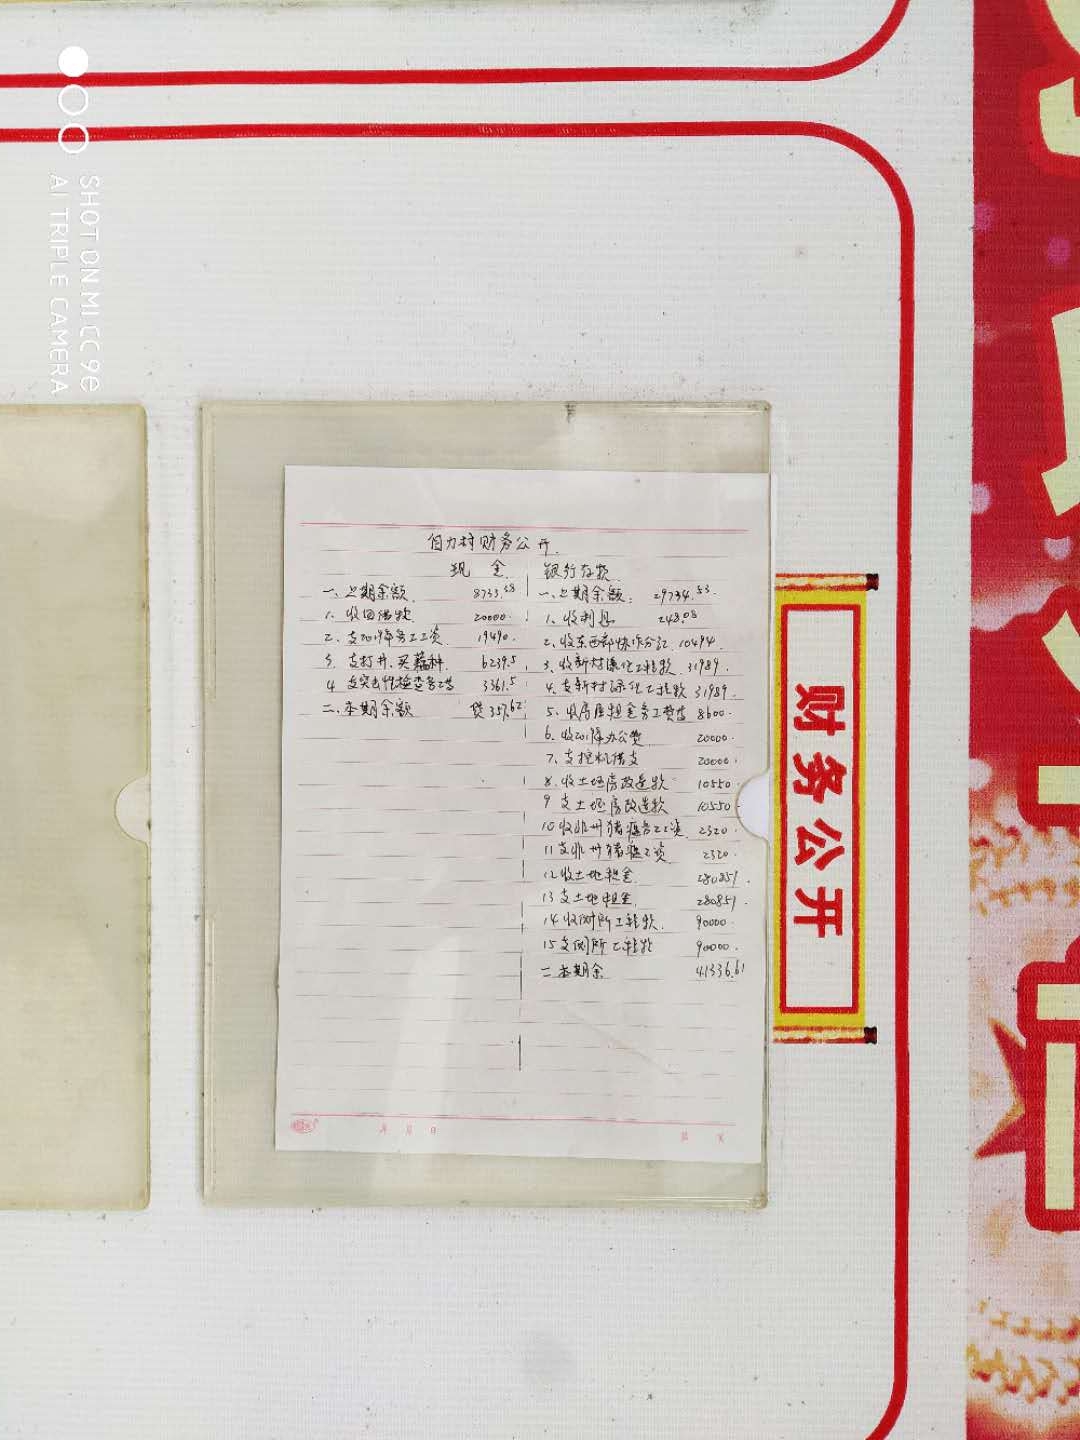 SHOT ON MI CC 9e
AI TRIPLE CAMERA
财务公开
自力村财务公开.
现 金. 银行存款.
一、上期余额 8733.58 一、上期余额: 29734.53
1. 收回借款 20000. 1. 收利息 248.08
2. 支2019年务工工资 19490. 2. 收东西部协作分红 10494.
3. 支打井、买藕种. 6239.5 3. 收新村绿化工程款. 31989.
4. 支突击性检查务工 3361.5 4. 支新村绿化工程款 31989.
二、本期余额 贷357.62 5. 收房屋租金务工费 8600.
6. 收2019年办公费 20000.
7. 支挖机借支 20000.
8. 收土坯房改造款 10550.
9 支土坯房改造款 10550
10 收非州猪瘟务工工资 2320.
11 支非州猪瘟工资 2320.
12 收土地租金. 280851.
13 支土地租金. 280851.
14 收厕所工程款. 90000.
15 支厕所工程款 90000.
二 本期余 41336.61
年 月 日
第 页